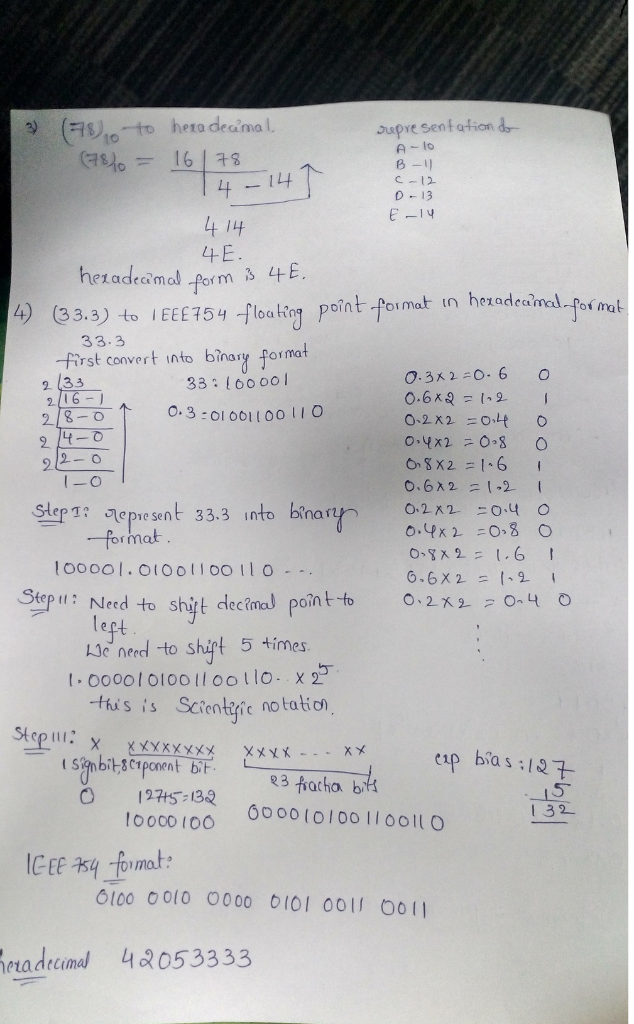 3) (78)10 to hexadecimal.
(78)10 = 16 | 78
4 - 14
4 14
4E.
hexadecimal form is 4E.
representation
A - 10
B - 11
C - 12
D - 13
E - 14
4) (33.3) to IEEE754 floating point format in hexadecimal format.
33.3
first convert into binary format
2 | 33
2 | 16 - 1
2 | 8 - 0
2 | 4 - 0
2 | 2 - 0
1 - 0
33 : 100001
0.3 = 01001100110
0.3 x 2 = 0.6 0
0.6 x 2 = 1.2 1
0.2 x 2 = 0.4 0
0.4 x 2 = 0.8 0
0.8 x 2 = 1.6 1
0.6 x 2 = 1.2 1
0.2 x 2 = 0.4 0
0.4 x 2 = 0.8 0
0.8 x 2 = 1.6 1
0.6 x 2 = 1.2 1
0.2 x 2 = 0.4 0
Step I: represent 33.3 into binary
format.
100001.01001100110 ...
Step II: Need to shift decimal point to
left.
We need to shift 5 times.
1.0000101001100110.. x 2^5
this is Scientific notation.
Step III: x xxxxxxxx xxxx --- xx
1 sign bit, 8 exponent bit. 23 fraction bits
0 127+5=132
10000100 0000101001100110
exp bias : 127
5
132
IEEE 754 format:
0100 0010 0000 0101 0011 0011
hexadecimal 42053333